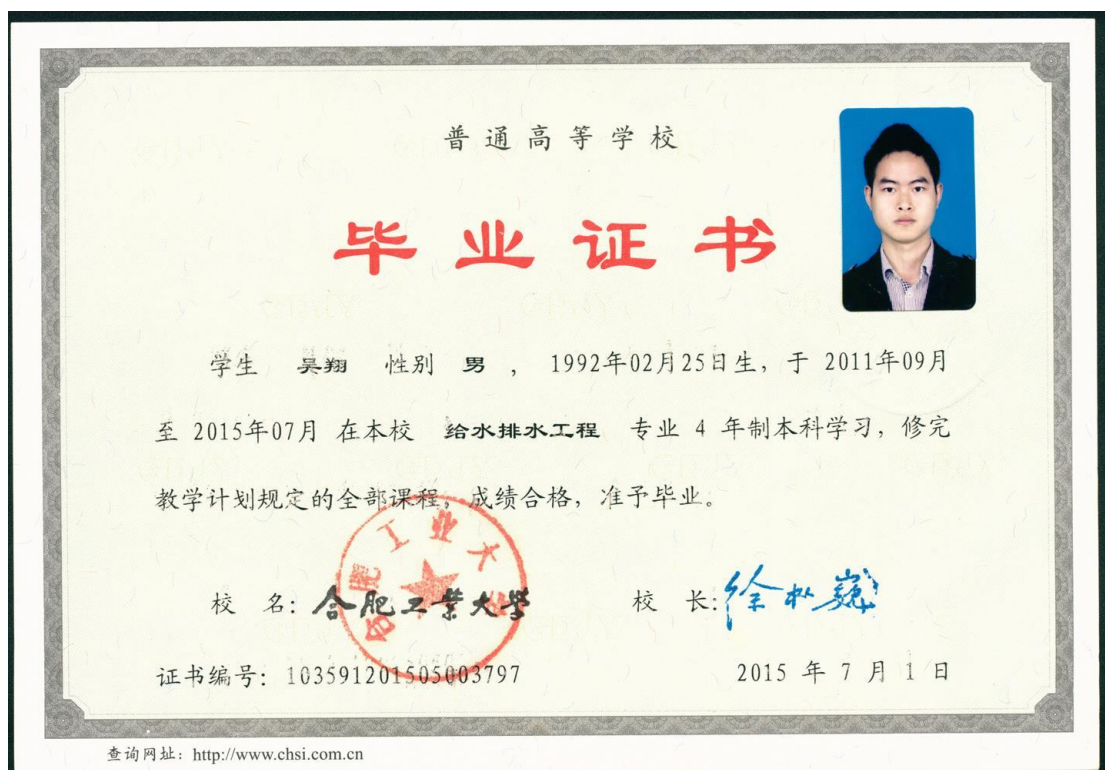 普通高等学校
毕业证书
学生 吴翔 性别 男 , 1992年02月25日生, 于 2011年09月
至 2015年07月 在本校 给水排水工程 专业 4 年制本科学习, 修完
教学计划规定的全部课程, 成绩合格, 准予毕业。
合肥工业大学
校 名: 合肥工业大学 校 长: 徐枞巍
证书编号: 103591201505003797 2015 年 7 月 1 日
查询网址: http://www.chsi.com.cn